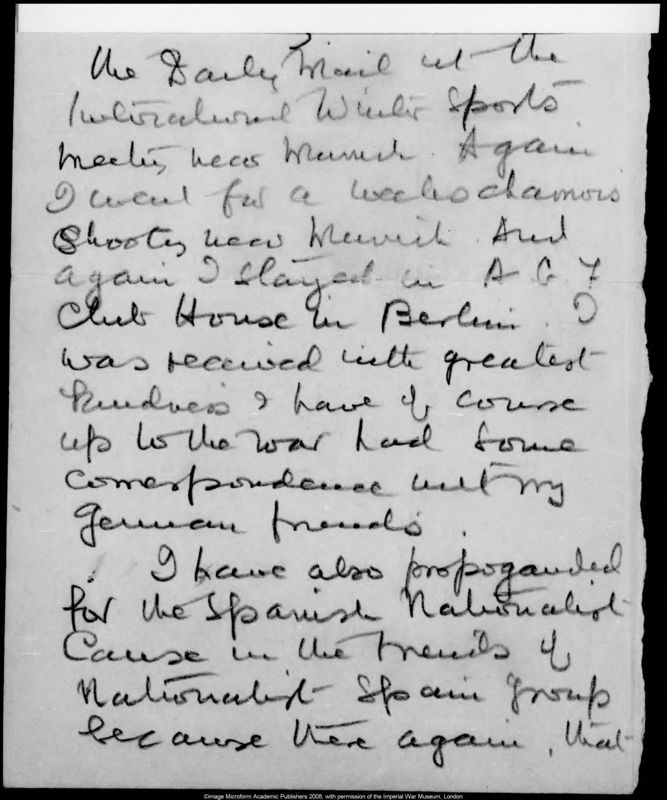 the Daily Mail at the
International Winter Sports
Meeting near Munich. Again
I went for a weeks chamois
Shooting near Munich. And
again I stayed in A G F
Club House in Berlin. I
was received with greatest
kindness & have of course
up to the war had some
correspondence with my
German friends.
I have also propoganded
for the Spanish Nationalist
Cause in the Friends of
Nationalist Spain group
because there again, that
©image Microform Academic Publishers 2008, with permission of the Imperial War Museum, London